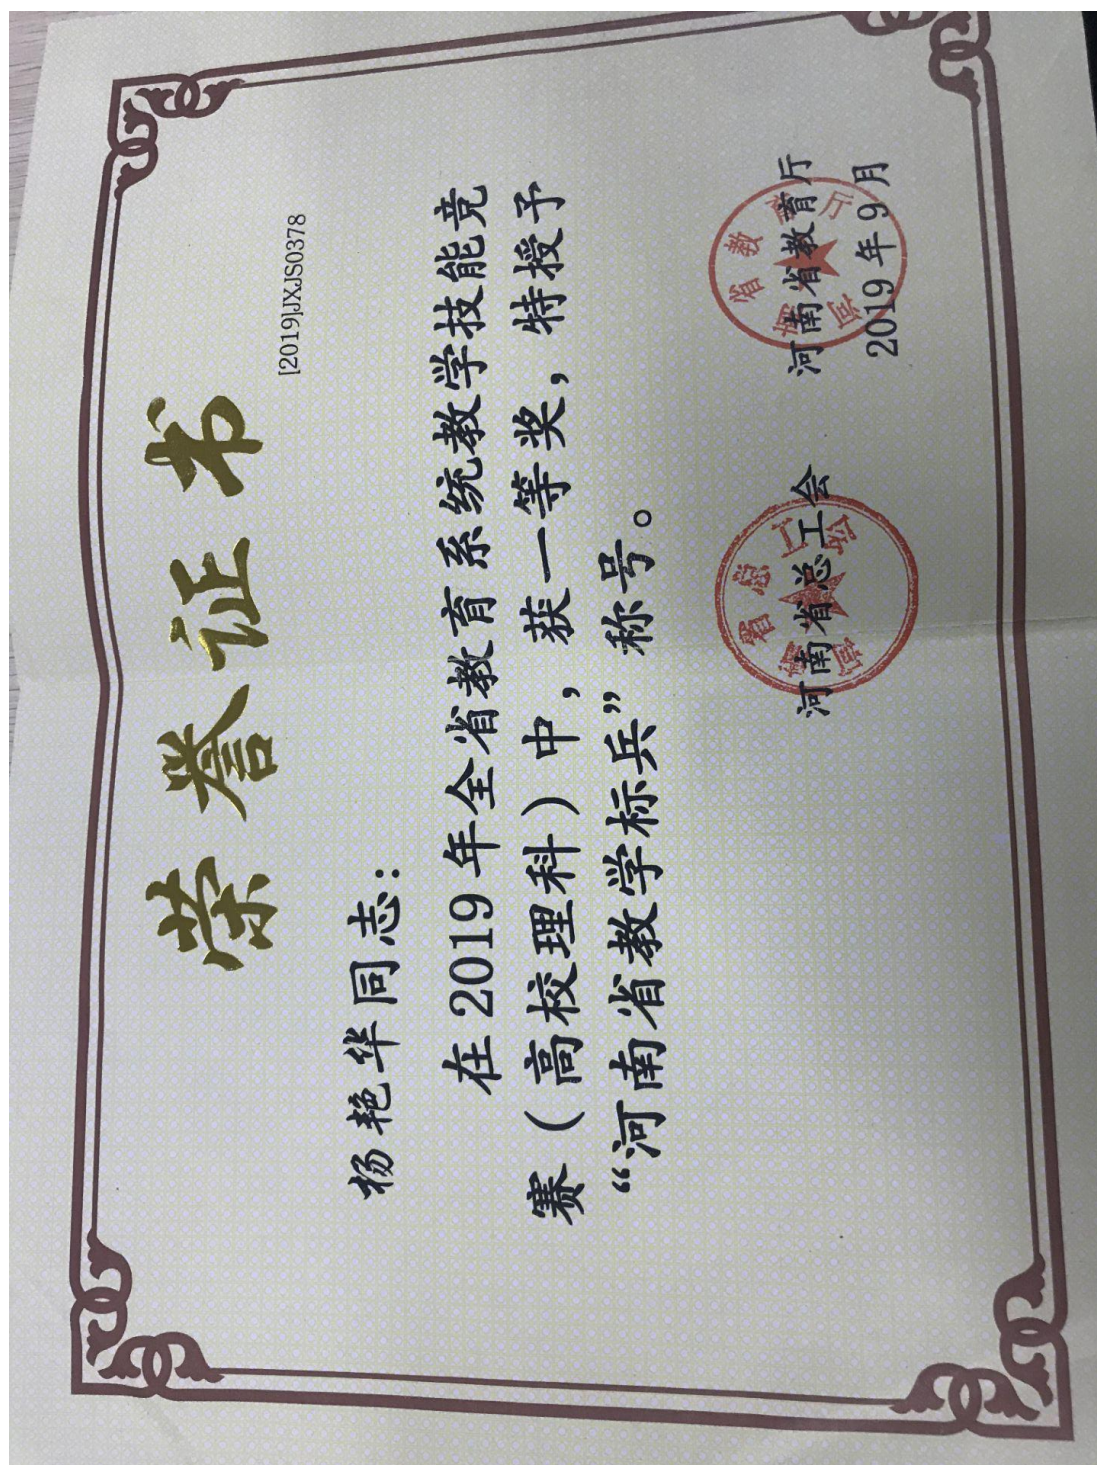 荣誉证书
[2019]JXJS0378
杨艳华同志：
在2019年全省教育系统教学技能竞
赛（高校理科）中，获一等奖，特授予
“河南省教学标兵”称号。
河南省总工会
河南省教育厅
2019年9月
河南省总工会
河南省教育厅